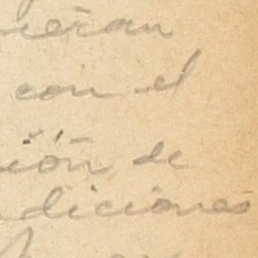 ieran
con el
ión de
diciones